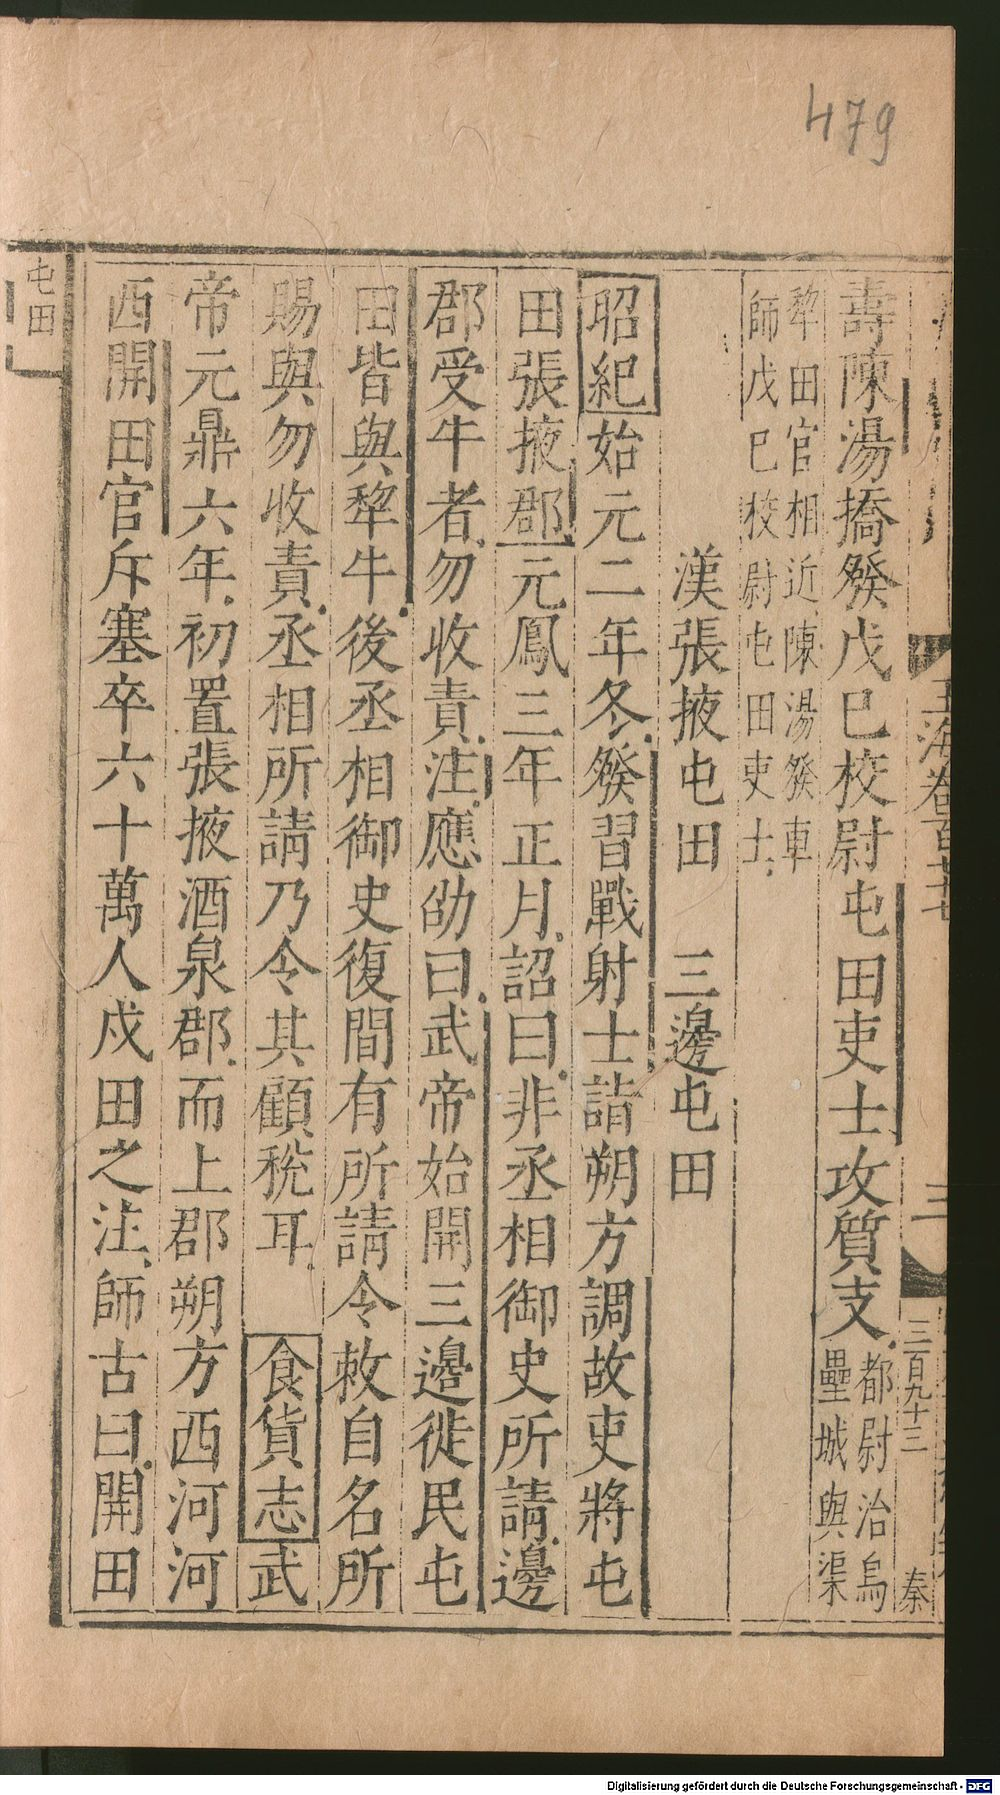 479
玉海卷百十七
三
三百九十三
秦
壽陳湯撟發戊巳校尉屯田吏士攻質支都尉治烏
壘城與渠
犂田官相近陳湯發車
師戊巳校尉屯田吏士
漢張掖屯田　三邊屯田
昭紀始元二年冬發習戰射士詣朔方調故吏將屯
田張掖郡元鳳三年正月詔曰非丞相御史所請邊
郡受牛者勿收責注應劭曰武帝始開三邊徙民屯
田皆與犂牛後丞相御史復間有所請令敕自名所
賜與勿收責丞相所請乃令其顧稅耳　食貨志武
帝元鼎六年初置張掖酒泉郡而上郡朔方西河河
西開田官斥塞卒六十萬人戍田之注師古曰開田
屯田
Digitalisierung gefördert durch die Deutsche Forschungsgemeinschaft - DFG